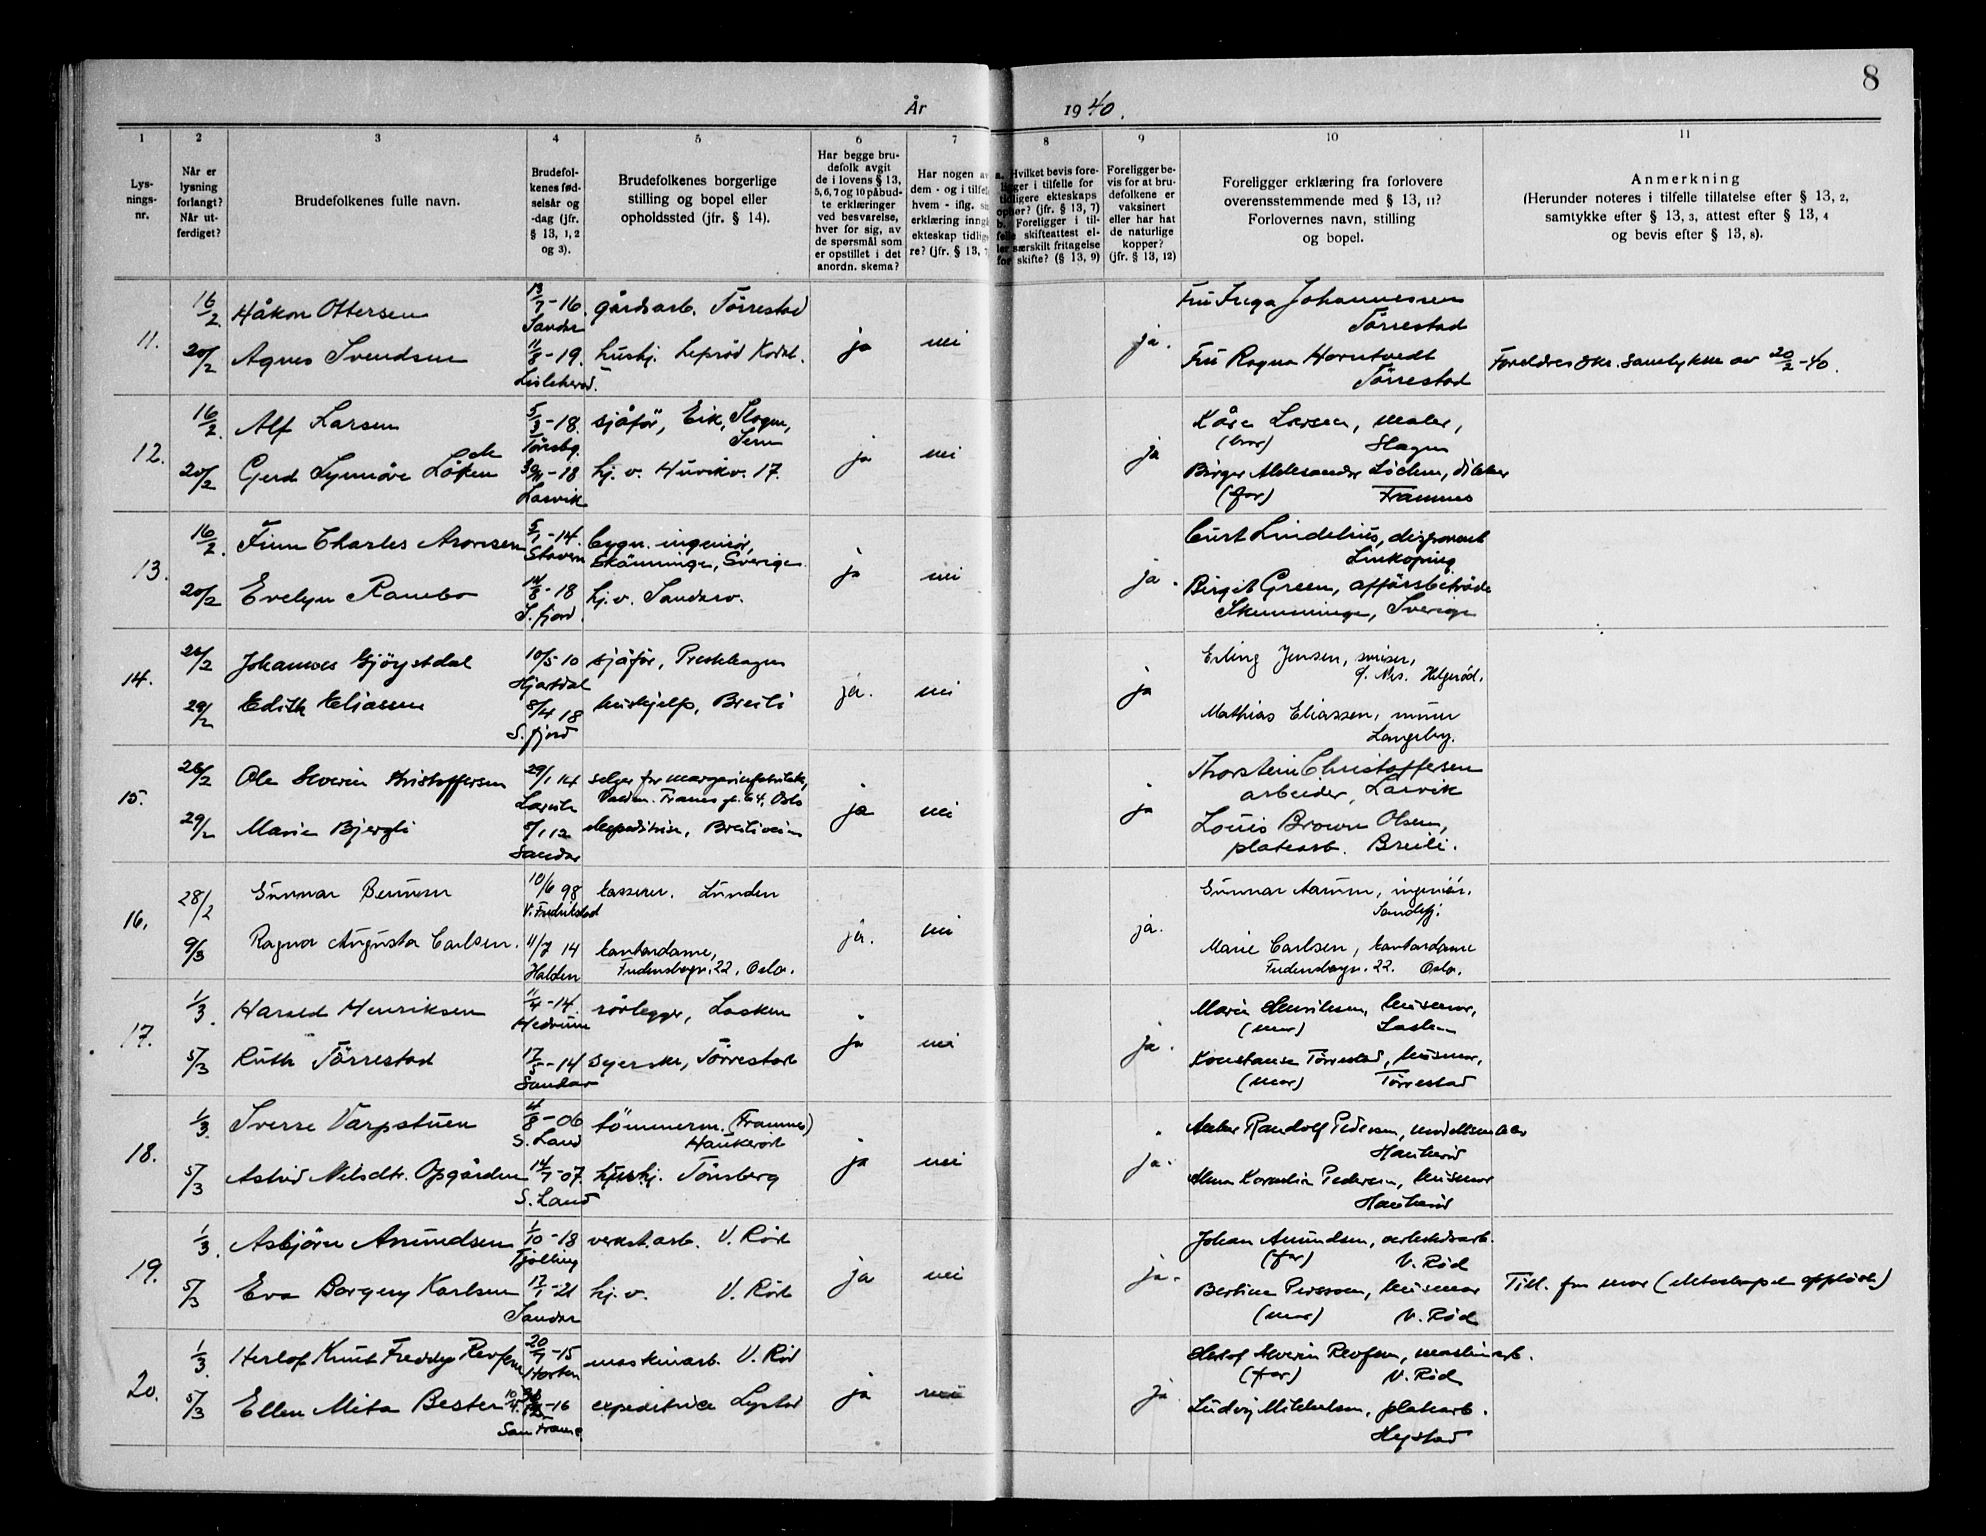 8
År 1940.
1
2
3
4
5
6
7
8
9
10
11
Lys-
nings-
nr.
Når er
lysning
forlangt?
Når ut-
ferdiget?
Brudefolkenes fulle navn.
Brudefol-
kenes fød-
selsår og
-dag (jfr.
§ 13, 1, 2
og 3).
Brudefolkenes borgerlige
stilling og bopel eller
opholdssted (jfr. § 14).
Har begge bru-
defolk avgit
de i lovens § 13,
5, 6, 7 og 10 påbud-
te erklæringer
ved besvarelse,
hver for sig, av
de spørsmål som
er opstillet i det
anordn. skema?
Har nogen av
dem - og i tilfe
hvem - iflg. si
erklæring inng
ekteskap tidlig
re? (jfr. § 13, 7
a. Hvilket bevis fore-
ligger i tilfelle for
tidligere ekteskaps
ophør? (jfr. § 13, 7)
b. Foreligger i til-
felle skifteattest el-
ler særskilt fritagelse
for skifte? (§ 13, 9)
Foreligger be-
vis for at bru-
defolkene er
vaksinert
eller har hat
de naturlige
kopper?
(jfr. § 13, 12)
Foreligger erklæring fra forlovere
overensstemmende med § 13, 11?
Forlovernes navn, stilling
og bopel.
Anmerkning
(Herunder noteres i tilfelle tillatelse efter § 13, 2,
samtykke efter § 13, 3, attest efter § 13, 4
og bevis efter § 13, 8).
11.
16/2. Håkon Ottersen 13/7-16. gårdsarb. Torrestad
Sandar
20/2 Agnes Svendsen 11/8-19. hushj. Leprød Kodal.
ja nei ja.
Fru Inga Johannessen
Torrestad
Fru Ragna Horntvedt
Torrestad
Foreldres skr. samtykke av 20/2-40.
12.
16/2. Alf Larsen 5/3-18. sjåför, Eik, Slagen,
Tönsbg. Sem
20/2 Gerd Synnöve Löken 30/11-18 hj. v. Huvikv. 17.
Larvik
ja nei ja
Kåre Larsen, maler,
(bror) Slagen
Birger Aleksander Löden,
(far) Framnes
13.
16/2. Finn Charles Aronsen 5/1-14. bygn. ingeniör,
Stavern Skänninge, Sverige
20/2 Evelyn Rambo 14/8-18 hj. v. Sandarv.
S.fjord.
ja nei ja.
Curt Lindelius, disponent
Linköping
Birgit Green, affärsbeträde
Skenninge, Sverige
14.
26/2 Johannes Gjöystdal 10/5 10 sjåför, Presthagen
Hjartdal
29/2 Edith Eliassen 8/4 18 hushjelp, Breili
S. fjord
ja. nei ja
Erling Jensen,
Helgeröd.
Mathias Eliassen, murer
Langeby.
15.
26/2 Ole Severin Kristoffersen 29/1 14 selger for margarinfabrikk,
Larvik Oslo
29/2 Marie Bjergli 8/1 12 ekspeditrise, Breiliveien
Sandar
ja nei ja
Thorstein Christoffersen
arbeider, Larvik
Louis Brown Olsen,
platearb. Breili.
16.
28/2 Gunnar Bennum 10/6 98 kasserer. Lunden
V. Fredrikstad
9/3 Ragna Augusta Carlsen. 11/7 14 kontordame,
Halden Fredensborgv. 22. Oslo.
ja. nei ja.
Gunnar Aarum, ingeniör.
Sandefj.
Marie Carlsen, kontordame
Fredensborgv. 22. Oslo.
17.
1/3. Harald Henriksen 11/4-14. rörlegger, Lasken
Hedrum
5/3 Ruth Törrestad 17/5-14 syerske, Törrestad
Sandar
ja nei ja.
Marie Henriksen, husmor,
(mor) Lasken
Konstanse Törrestad, husmor,
(mor) Törrestad
18.
1/3. Sverre Varpstuen 4/8-06 tömmerm. (Framnes)
S. Land Haukeröd
5/3 Astrid Nilsdtr. Opgården 14/7-07. hushj. Tönsberg
S. Land
ja nei ja.
Randolf Pedersen,
Haukeröd
Anna Kornelia Pedersen, husmor
Haukeröd
19.
1/3. Asbjörn Amundsen 1/10-18 verkst.arb. V. Röd
Tjölling
5/3 Eva Borgny Karlsen 17/1-21 hj. v. V. Röd
Sandar
ja nei ja.
Johan Amundsen, verkstedarb.
(far) V. Röd
Bertine Pedersen, husmor
(mor) V. Röd
Till. fra mor (ekteskapet opplöst)
20.
1/3. Herlof Knut Freddy Revfem 20/7-15 maskinarb. V. Röd
Horten
5/3 Ellen Mita Bester -16 expeditrice Lystad
San Franc.
ja nei ja
Herlof Severin Revfem, maskinarb.
(far) V. Röd
Ludvig Mikkelsen, platearb.
Hystad